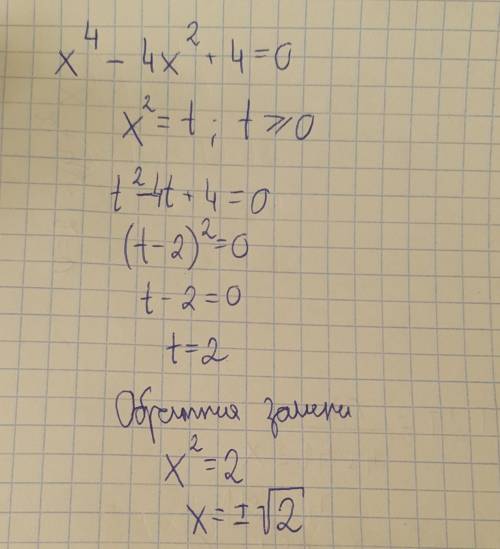 x⁴ - 4x² + 4 = 0
x² = t ; t ⩾ 0
t² - 4t + 4 = 0
(t - 2)² = 0
t - 2 = 0
t = 2
Обратная замена
x² = 2
x = ±√2